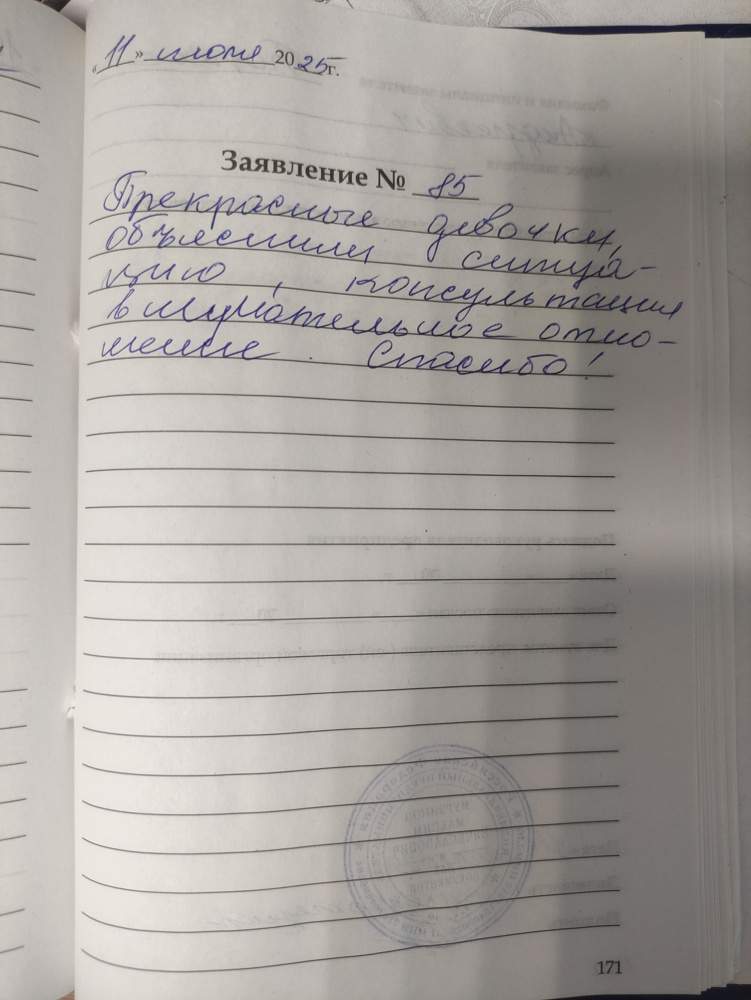 «11» июля 2025г.
Заявление № 85
Прекрасные девочки,
объяснили ситуа-
цию, консультация
внимательное отно-
шение. Спасибо!
171